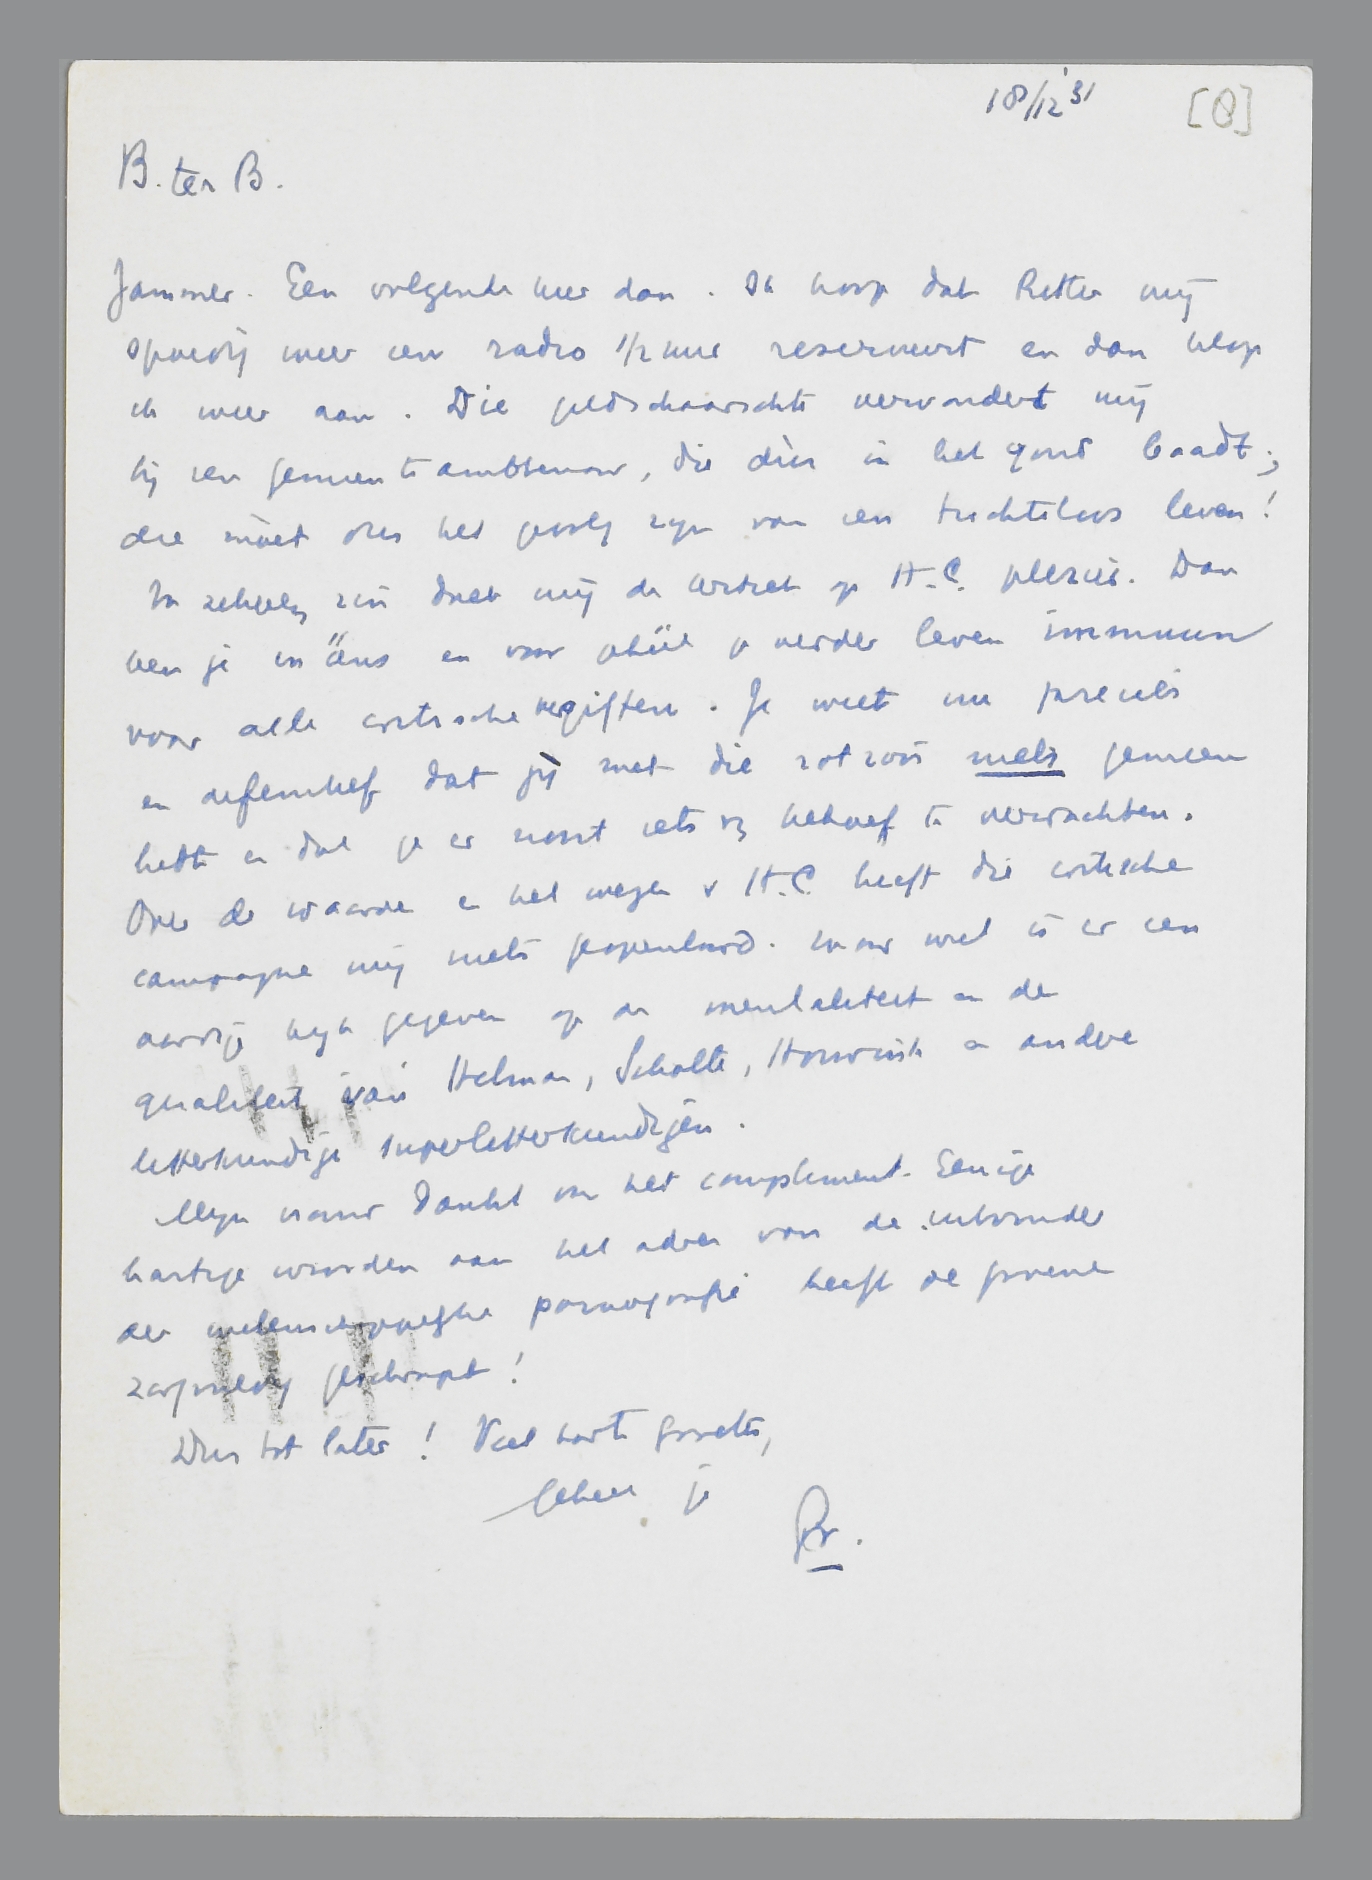 18/12 '31 [8]
B. ter B.
Jammer. Een volgende keer dan. Ik hoop dat Ritter mij
spoedig weer een radio 1/2 uur reserveert en dan klop
ik weer aan. Die geldschaarschte verwondert mij
bij een gemeente ambtenaar, die dus in het goud baadt;
die moet dus het gevolg zijn van een tuchteloos leven!
In zekeren zin doet mij de critiek op H.C. plezier. Dan
ben je in ééns en voor je verder leven immuun
voor alle critische vergiften. Je weet nu precies
en definitief dat jij met die rotzooi niets gemeen
hebt en dat je er nooit iets v/ behoeft te verwachten.
Over de waarde en het wezen v H.C. heeft die critische
campagne mij niets geopenbaard. maar wel is er een
aardige kijk gegeven op de mentaliteit en de
qualiteit van Helman, Scholte, Houwink en andere
letterkundige superletterkundigen.
Mijn vrouw dankt voor het compliment. Eenige
hartige woorden aan het adres van de uitvinder
der pornografie heeft de groene
zorgvuldig geschrapt!
Dus tot later! Veel harte groeten,
geheel je
Gr.